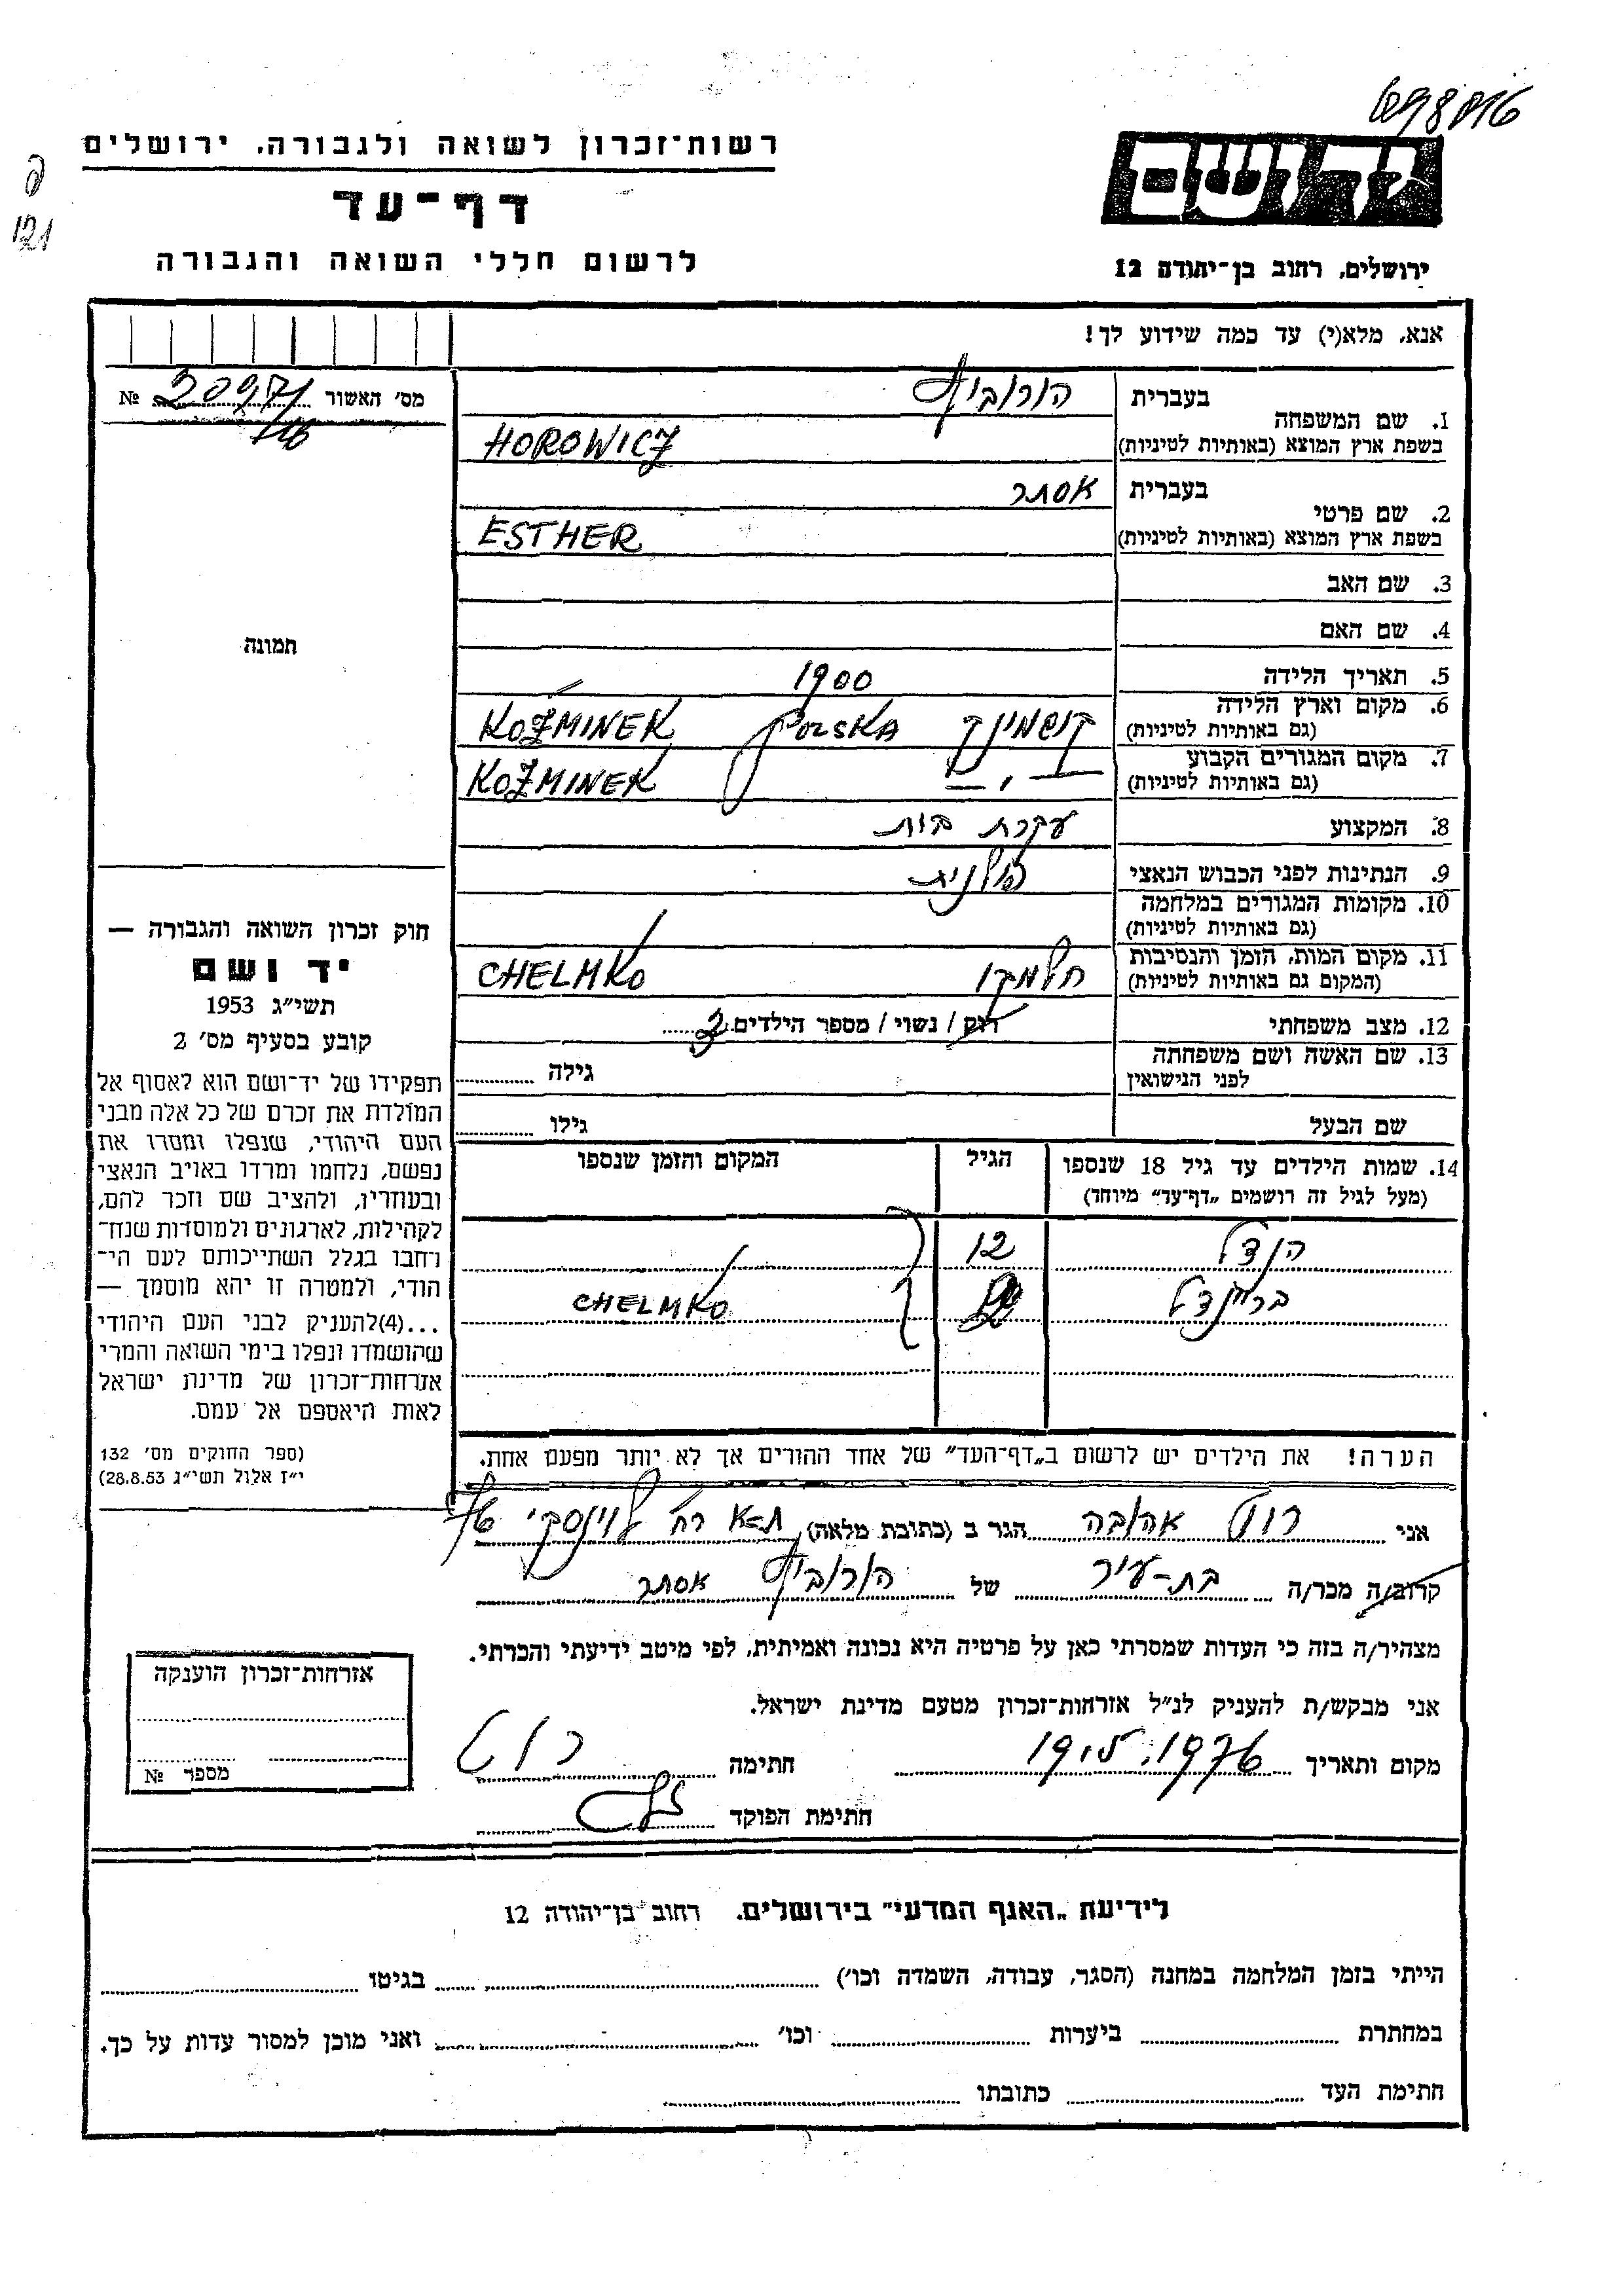 יד ושם
ירושלים, רחוב בן-יהודה 12
רשות-זכרון לשואה ולגבורה, ירושלים
דף-עד
לרשום חללי השואה והגבורה
121
אנא, מלא(י) עד כמה שידוע לך!
מס׳ האשור № 20971
1. שם המשפחה בעברית הורוביץ
בשפת ארץ המוצא (באותיות לטיניות) HOROWICZ
2. שם פרטי בעברית אסתר
בשפת ארץ המוצא (באותיות לטיניות) ESTHER
3. שם האב
4. שם האם
תמונה
5. תאריך הלידה 1900
6. מקום וארץ הלידה (גם באותיות לטיניות) קוזמינק POLSKA KOŹMINEK
7. מקום המגורים הקבוע (גם באותיות לטיניות) — " — KOŹMINEK
8. המקצוע עקרת בית
9. הנתינות לפני הכבוש הנאצי פולנית
10. מקומות המגורים במלחמה (גם באותיות לטיניות)
11. מקום המות, הזמן והנסיבות (המקום גם באותיות לטיניות) חלמנו CHELMKO
12. מצב משפחתי רוק / נשוי / מספר הילדים
13. שם האשה ושם משפחתה לפני הנישואין גילה
שם הבעל גילו
14. שמות הילדים עד גיל 18 שנספו (מעל לגיל זה רושמים „דף-עד״ מיוחד) הגיל המקום והזמן שנספו
הנדל 12
בריינדל CHELMKO
הערה! את הילדים יש לרשום ב„דף-העד״ של אחד ההורים אך לא יותר מפעם אחת.
חוק זכרון השואה והגבורה —
יד ושם
תשי״ג 1953
קובע בסעיף מס׳ 2
תפקידו של יד-ושם הוא לאסוף אל
המולדת את זכרם של כל אלה מבני
העם היהודי, שנפלו ומסרו את
נפשם, נלחמו ומרדו באויב הנאצי
ובעוזריו, ולהציב שם וזכר להם,
לקהילות, לארגונים ולמוסדות שנח-
רחבו בגלל השתייכותם לעם הי-
הודי, ולמטרה זו יהא מוסמך —
...(4)להעניק לבני העם היהודי
שהושמדו ונפלו בימי השואה והמרי
אזרחות-זכרון של מדינת ישראל
לאות היאספם אל עמם.
(ספר החוקים מס׳ 132
י״ז אלול תשי״ג 28.8.53)
אני רוט אהובה הגר ב (כתובת מלאה) ת-א רח׳ לוינסקי
קרוב/ה מכר/ה בת-עיר של הורוביץ אסתר
מצהיר/ה בזה כי העדות שמסרתי כאן על פרטיה היא נכונה ואמיתית, לפי מיטב ידיעתי והכרתי.
אני מבקש/ת להעניק לנ״ל אזרחות-זכרון מטעם מדינת ישראל.
מקום ותאריך 19.5.1976 חתימה רוט
חתימת הפוקד
אזרחות-זכרון הוענקה
מספר №
לידיעת „האגף המדעי״ בירושלים. רחוב בן-יהודה 12
הייתי בזמן המלחמה במחנה (הסגר, עבודה, השמדה וכו׳) בגיטו
במחתרת ביערות וכו׳ ואני מוכן למסור עדות על כך.
חתימת העד כתובתו